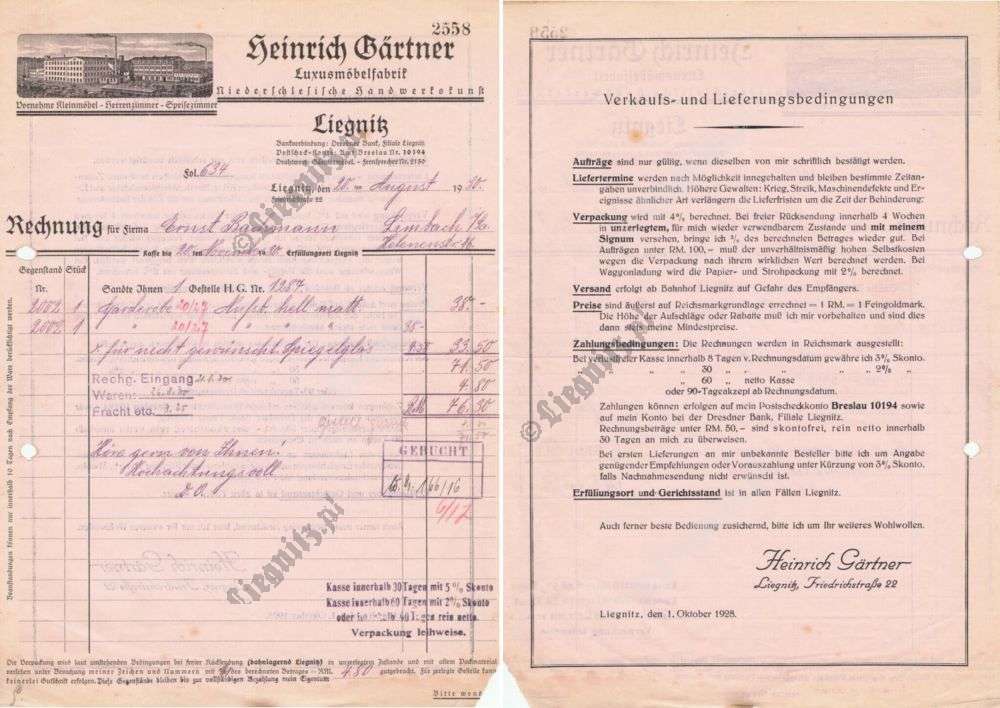 2558
Heinrich Gärtner
Luxusmöbelfabrik
Niederschlesische Handwerkskunst
Vornehme Kleinmöbel - Herrenzimmer - Speisezimmer
Liegnitz
Bankverbindung: Dresdner Bank, Filiale Liegnitz
Postscheck-Konto: Amt Breslau Nr. 10194
Fernsprecher Nr. 2150
Fol. 634
Liegnitz, den 20. August 1930.
Friedrichstraße 22
Rechnung für Firma Ernst Limbach
Kasse bis Erfüllungsort Liegnitz
Gegenstand Stück
Nr.
Sandte Ihnen 1 Gestelle H. G. Nr. 1284.
2002 1 Garderobe 20/27 hell matt. 38.-
2002 1 " 20/27 " " " 35-
x für nicht gewünscht. Spiegelglas 33.50
71.50
Rechg. Eingang
4.80
Waren:
Fracht etc.
RM 76.30
GEBUCHT
166/16
6/17
Höre gern von Ihnen!
Hochachtungsvoll
D. O.
Kasse innerhalb 30 Tagen mit 5% Skonto
Kasse innerhalb 60 Tagen mit 2% Skonto
oder innerhalb Tagen rein netto.
Verpackung leihweise.
Beanstandungen können nur innerhalb 10 Tagen nach Empfang der Ware berücksichtigt werden.
Die Verpackung wird laut umstehenden Bedingungen bei freier Rücksendung (bahnlagernd Liegnitz) in unzerlegtem Zustande und mit allem Packmaterial
versehen unter Benutzung meiner Zeichen und Nummern mit des berechneten Betrages = RM. 4.80 gutgebracht. Für zerlegte Gestelle kann
keinerlei Gutschrift erfolgen. Diese Gegenstände bleiben bis zur vollständigen Bezahlung mein Eigentum
Bitte wend
© Liegnitz.pl
Liegnitz.pl
Verkaufs- und Lieferungsbedingungen
Aufträge sind nur gültig, wenn dieselben von mir schriftlich bestätigt werden.
Liefertermine werden nach Möglichkeit innegehalten und bleiben bestimmte Zeitan-
gaben unverbindlich. Höhere Gewalten: Krieg, Streik, Maschinendefekte und Er-
eignisse ähnlicher Art verlängern die Lieferfristen um die Zeit der Behinderung:
Verpackung wird mit 4% berechnet. Bei freier Rücksendung innerhalb 4 Wochen
in unzerlegtem, für mich wieder verwendbarem Zustand und mit meinem
Signum versehen, bringe ich ⅔ des berechneten Betrages wieder gut. Bei
Aufträgen unter RM. 100,- muß der unverhältnismäßig hohen Selbstkosten
wegen die Verpackung nach ihrem wirklichen Wert berechnet werden. Bei
Waggonladung wird die Papier- und Strohpackung mit 2% berechnet.
Versand erfolgt ab Bahnhof Liegnitz auf Gefahr des Empfängers.
Preise sind äußerst auf Reichsmarkgrundlage errechnet = 1 RM = 1 Feingoldmark.
Die Höhe der Aufschläge oder Rabatte muß ich mir vorbehalten und sind dies
dann stets meine Mindestpreise.
Zahlungsbedingungen: Die Rechnungen werden in Reichsmark ausgestellt:
Bei verlustfreier Kasse innerhalb 8 Tagen v. Rechnungsdatum gewähre ich 3% Skonto.
" " " 30 " " " " 2% "
" " " 60 " netto Kasse
oder 90-Tagesakzept ab Rechnungsdatum.
Zahlungen können erfolgen auf mein Postscheckkonto Breslau 10194 sowie
auf mein Konto bei der Dresdner Bank, Filiale Liegnitz.
Rechnungsbeträge unter RM. 50,- sind skontofrei, rein netto innerhalb
30 Tagen an mich zu überweisen.
Bei ersten Lieferungen an mir unbekannte Besteller bitte ich um Angabe
genügender Empfehlungen oder Vorauszahlung unter Kürzung von 3% Skonto,
falls Nachnahmesendung nicht erwünscht ist.
Erfüllungsort und Gerichtsstand ist in allen Fällen Liegnitz.
Auch ferner beste Bedienung zusichernd, bitte ich um Ihr weiteres Wohlwollen.
Heinrich Gärtner
Liegnitz, Friedrichstraße 22
Liegnitz, den 1. Oktober 1928.
© Liegnitz.pl